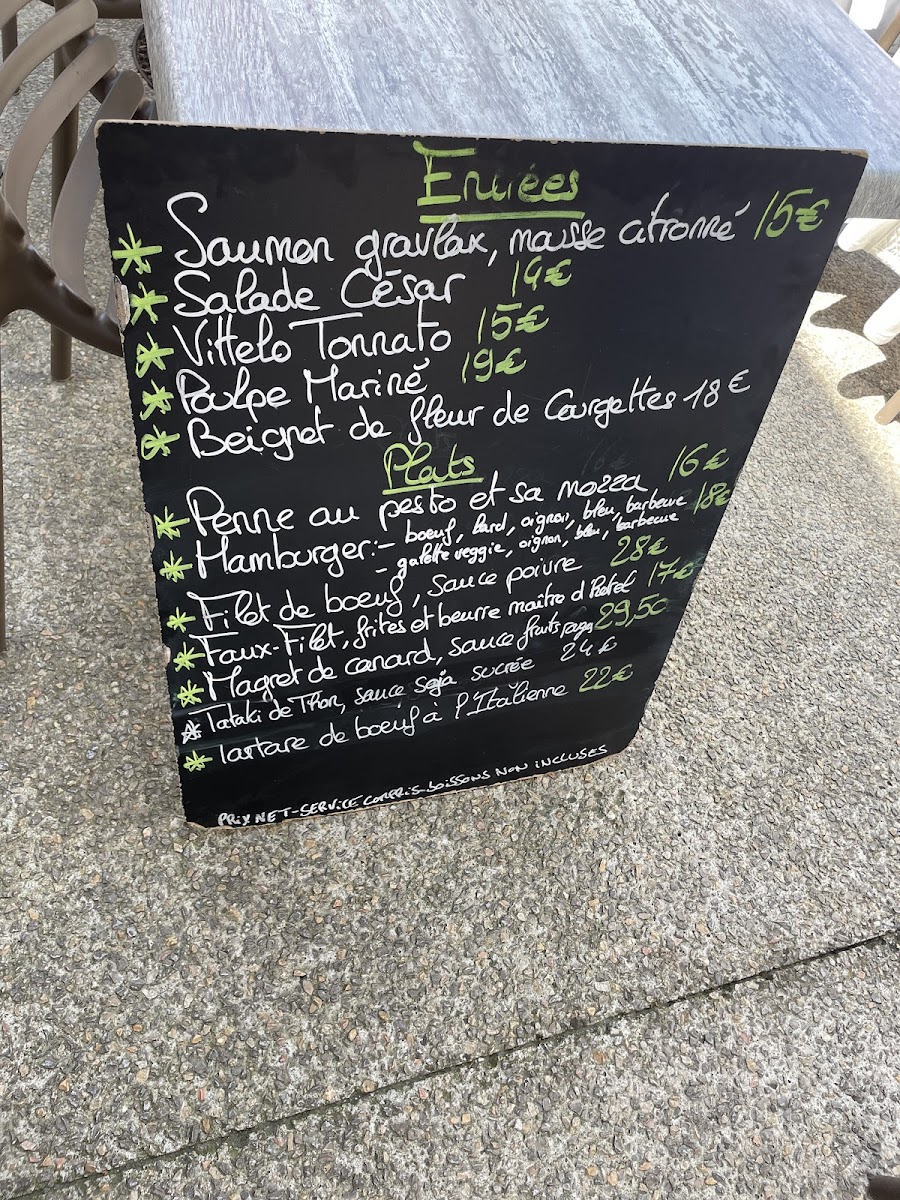 Entrées
* Saumon gravlax, mousse citronné 15€
* Salade César 14€
* Vittelo Tonnato 15€
* Poulpe Mariné 19€
* Beignet de fleur de Courgettes 18€
Plats
* Penne au pesto et sa mozza 16€
* Hamburger: - boeuf, lard, oignon, bleu, barbecue 18€
- galette veggie, oignon, bleu, barbecue
* Filet de boeuf, sauce poivre 28€
* Faux-Filet, frites et beurre maître d'hôtel 17€
* Magret de canard, sauce fruits rouges 29,50
* Tataki de Thon, sauce soja sucrée 24€
* Tartare de boeuf à l'Italienne 22€
PRIX NET-SERVICE COMPRIS-BOISSONS NON INCLUSES